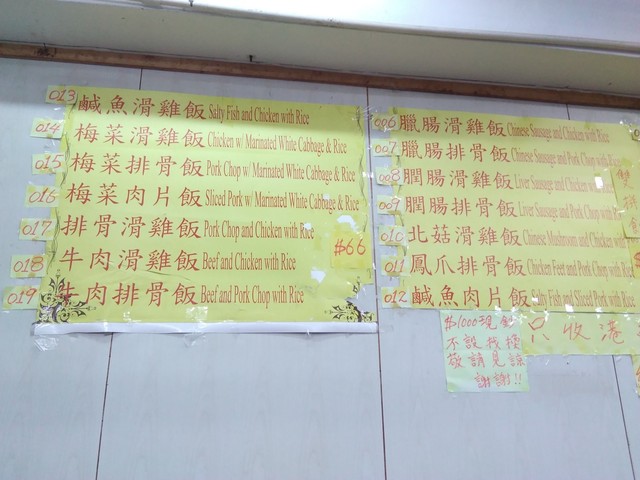 013 鹹魚滑雞飯 Salty Fish and Chicken with Rice
014 梅菜滑雞飯 Chicken w/ Marinated White Cabbage & Rice
015 梅菜排骨飯 Pork Chop w/ Marinated White Cabbage & Rice
016 梅菜肉片飯 Sliced Pork w/ Marinated White Cabbage & Rice
017 排骨滑雞飯 Pork Chop and Chicken with Rice
018 牛肉滑雞飯 Beef and Chicken with Rice
019 牛肉排骨飯 Beef and Pork Chop with Rice
$66
006 臘腸滑雞飯 Chinese Sausage and Chicken with Rice
007 臘腸排骨飯 Chinese Sausage and Pork Chop with Rice
008 膶腸滑雞飯 Liver Sausage and Chicken with Rice
009 膶腸排骨飯 Liver Sausage and Pork Chop with Rice
010 北菇滑雞飯 Chinese Mushroom and Chicken with
011 鳳爪排骨飯 Chicken Feet and Pork Chop with Rice
012 鹹魚肉片飯 Salty Fish and Sliced Pork with Rice
$1000現鈔
不設找換
敬請見諒
謝謝!!
只收港